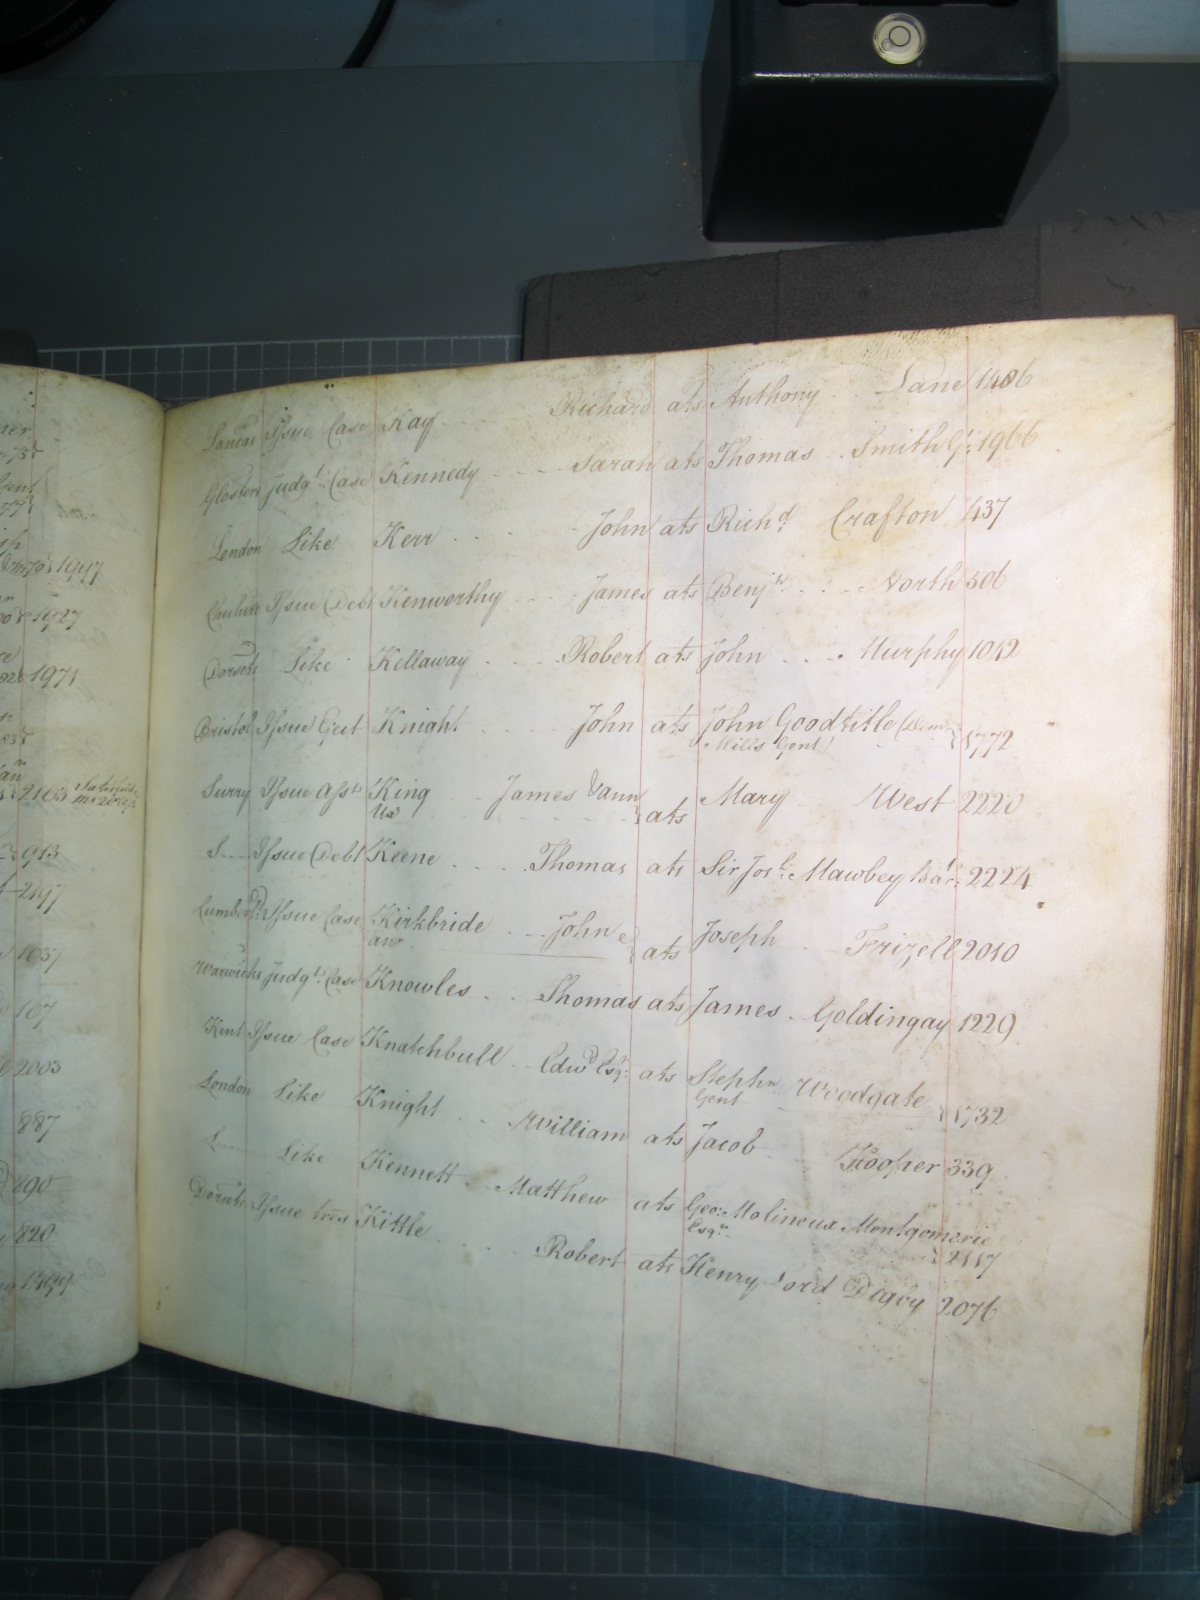 Lancas Issue Case Kay Richard ats Anthony Lane 1486
Glosters Judgt. Case Kennedy Sarah ats Thomas Smith Gt. 1966
London Like Kerr John ats Richd. Crafton 1437
Cheshire Issue Debt Kenworthy James ats Benjn. North 506
Dorsets Like Kellaway Robert ats John Murphy 1042
Bristol Issue Eject Knight John ats John Goodtitle Dem
Mills Gent 1772
Surry Issue Asst King James Vann ats Mary West 2220
Ux
S Issue Debt Keene Thomas ats Sir Josh. Mawbey Bart. 2224
Cumberld. Issue Case Kirkbride John ats Joseph Frizell 2010
anr
Warwicks Judgt. Case Knowles Thomas ats James Goldingay 1229
Kent Issue Case Knatchbull Edwd Esqr. ats Stephn Woodgate
Gent 1732
London Like Knight William ats Jacob Hooper 339
L Like Kennett Matthew ats Geo: Molineux Montgomerie
Esqr. 2117
Dorsets Issue tres Kittle Robert ats Henry Lord Digby 2076
1947
1927
1971
2103
913
2197
1037
167
2003
887
890
820